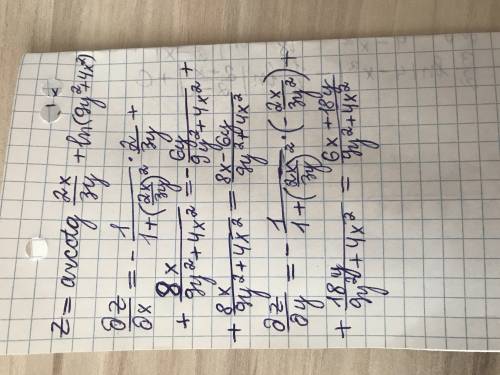 z = arcctg 2x/3y + ln(9y²+4x²)
∂z/∂x = - 1/(1+(2x/3y)²) · 2/3y +
+ 8x/(9y²+4x²) = - 6y/(9y²+4x²) +
+ 8x/(9y²+4x²) = (8x-6y)/(9y²+4x²)
∂z/∂y = - 1/(1+(2x/3y)²) · (- 2x/3y²) +
+ 18y/(9y²+4x²) = (6x+18y)/(9y²+4x²)